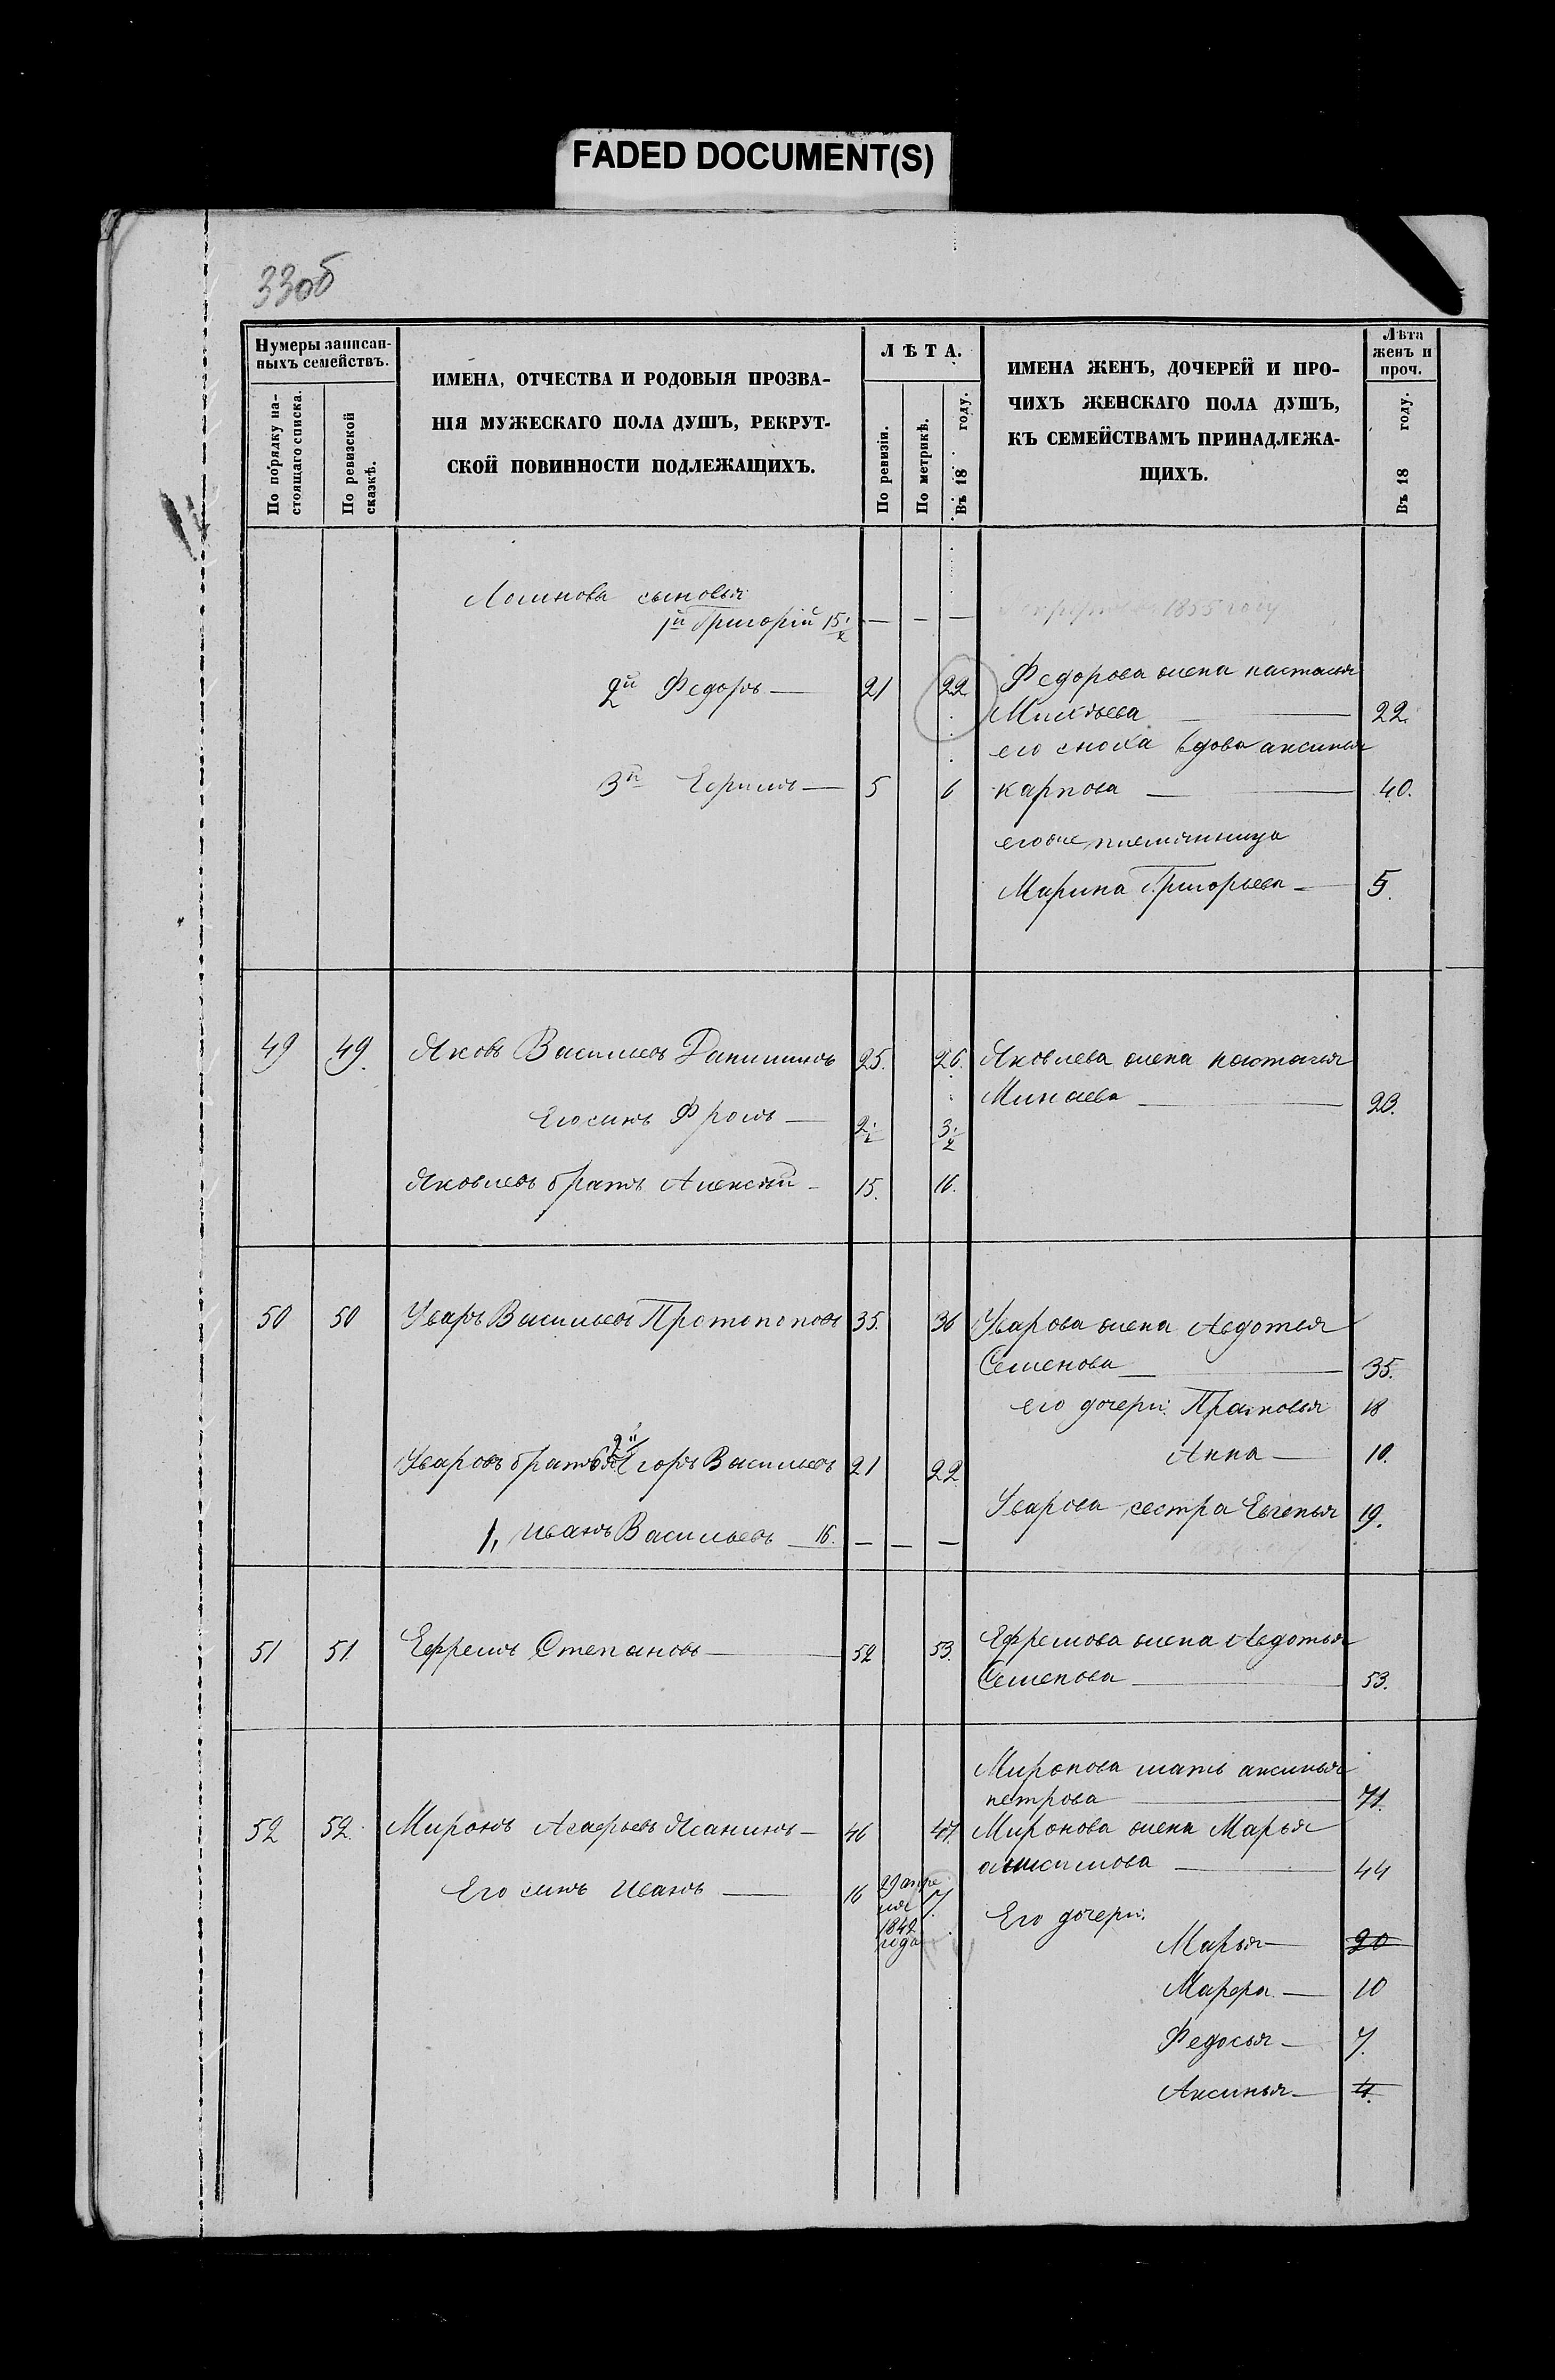 FADED DOCUMENT(S)
33об
Нумеры записан-
ныхъ семействъ.
По порядку на-
стоящаго списка.
По ревизской
сказкѣ.
ИМЕНА, ОТЧЕСТВА И РОДОВЫЯ ПРОЗВА-
НІЯ МУЖЕСКАГО ПОЛА ДУШЪ, РЕКРУТ-
СКОЙ ПОВИННОСТИ ПОДЛЕЖАЩИХЪ.
ЛѢТА.
По ревизіи.
По метрикѣ.
Въ 18 году.
ИМЕНА ЖЕНЪ, ДОЧЕРЕЙ И ПРО-
ЧИХЪ ЖЕНСКАГО ПОЛА ДУШЪ,
КЪ СЕМЕЙСТВАМЪ ПРИНАДЛЕЖА-
ЩИХЪ.
Лѣта
женъ и
проч.
Въ 18 году.
сыновья
1й Григорій 15 1/2 — — — 1855 году
2й Федоръ — 21 22 Федорова жена настасья
22.
его сноха вдова аксинья
3й 5 6 карпова — 40.
егоже племянница
Марина Григорьева — 5.
49 49. Яковъ Васильевъ Данишинъ 25. 26. Яковлева жена настасья
Минаева — 23.
Его сынъ Фролъ — 2 1/2 3 1/2
Яковлевъ братъ Алексѣй — 15. 16.
50 50 Уваръ Васильевъ Протопоповъ 35. 36 Уварова жена Авдотья
Семенова — 35.
его дочери: Прасковья 18
Анна — 10.
Уваровъ братья 2й Егоръ Васильевъ 21 22
Уварова сестра Евгенья 19.
1, Иванъ Васильевъ — 16. — — —
51 51. Ефремъ Степановъ — 52 53. Ефремова жена Авдотья
Семенова — 53.
Миронова мать аксинья
петрова — 71.
52 52. Миронъ Агафьевъ 46 47. Миронова жена Марья
анисимова — 44
Его сынъ Иванъ — 16 29 апре
ля 17.
1842
года
Его дочери:
Марья — 20
Марфа — 10
Федосья — 7.
Аксинья — 4.